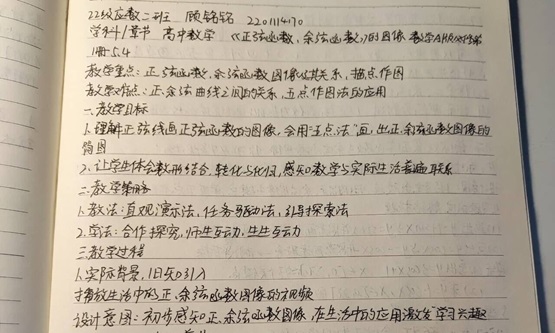 22级应数二班 顾铭铭 2201114170
学科/章节 高中数学 《正弦函数,余弦函数》的图像 数学A版必修第
1册5.4
教学重点:正弦函数,余弦函数图像及其关系,描点作图
教学难点:正、余弦曲线之间的关系,五点作图法的应用
一、教学目标
1.理解正弦线画正弦函数的图像,会用"五点法"画出正、余弦函数图像的
简图
2.让学生体会数形结合、转化与化归,感知数学与实际生活普遍联系
二、教学策略
1.教法:直观演示法,任务驱动法,引导探索法
2.学法:合作探究,师生互动,生生互动
三、教学过程
1.实际背景,旧知引入
播放生活中的正、余弦函数图像的视频
设计意图:初步感知正、余弦函数图像,在生活中的应用激发学习兴趣